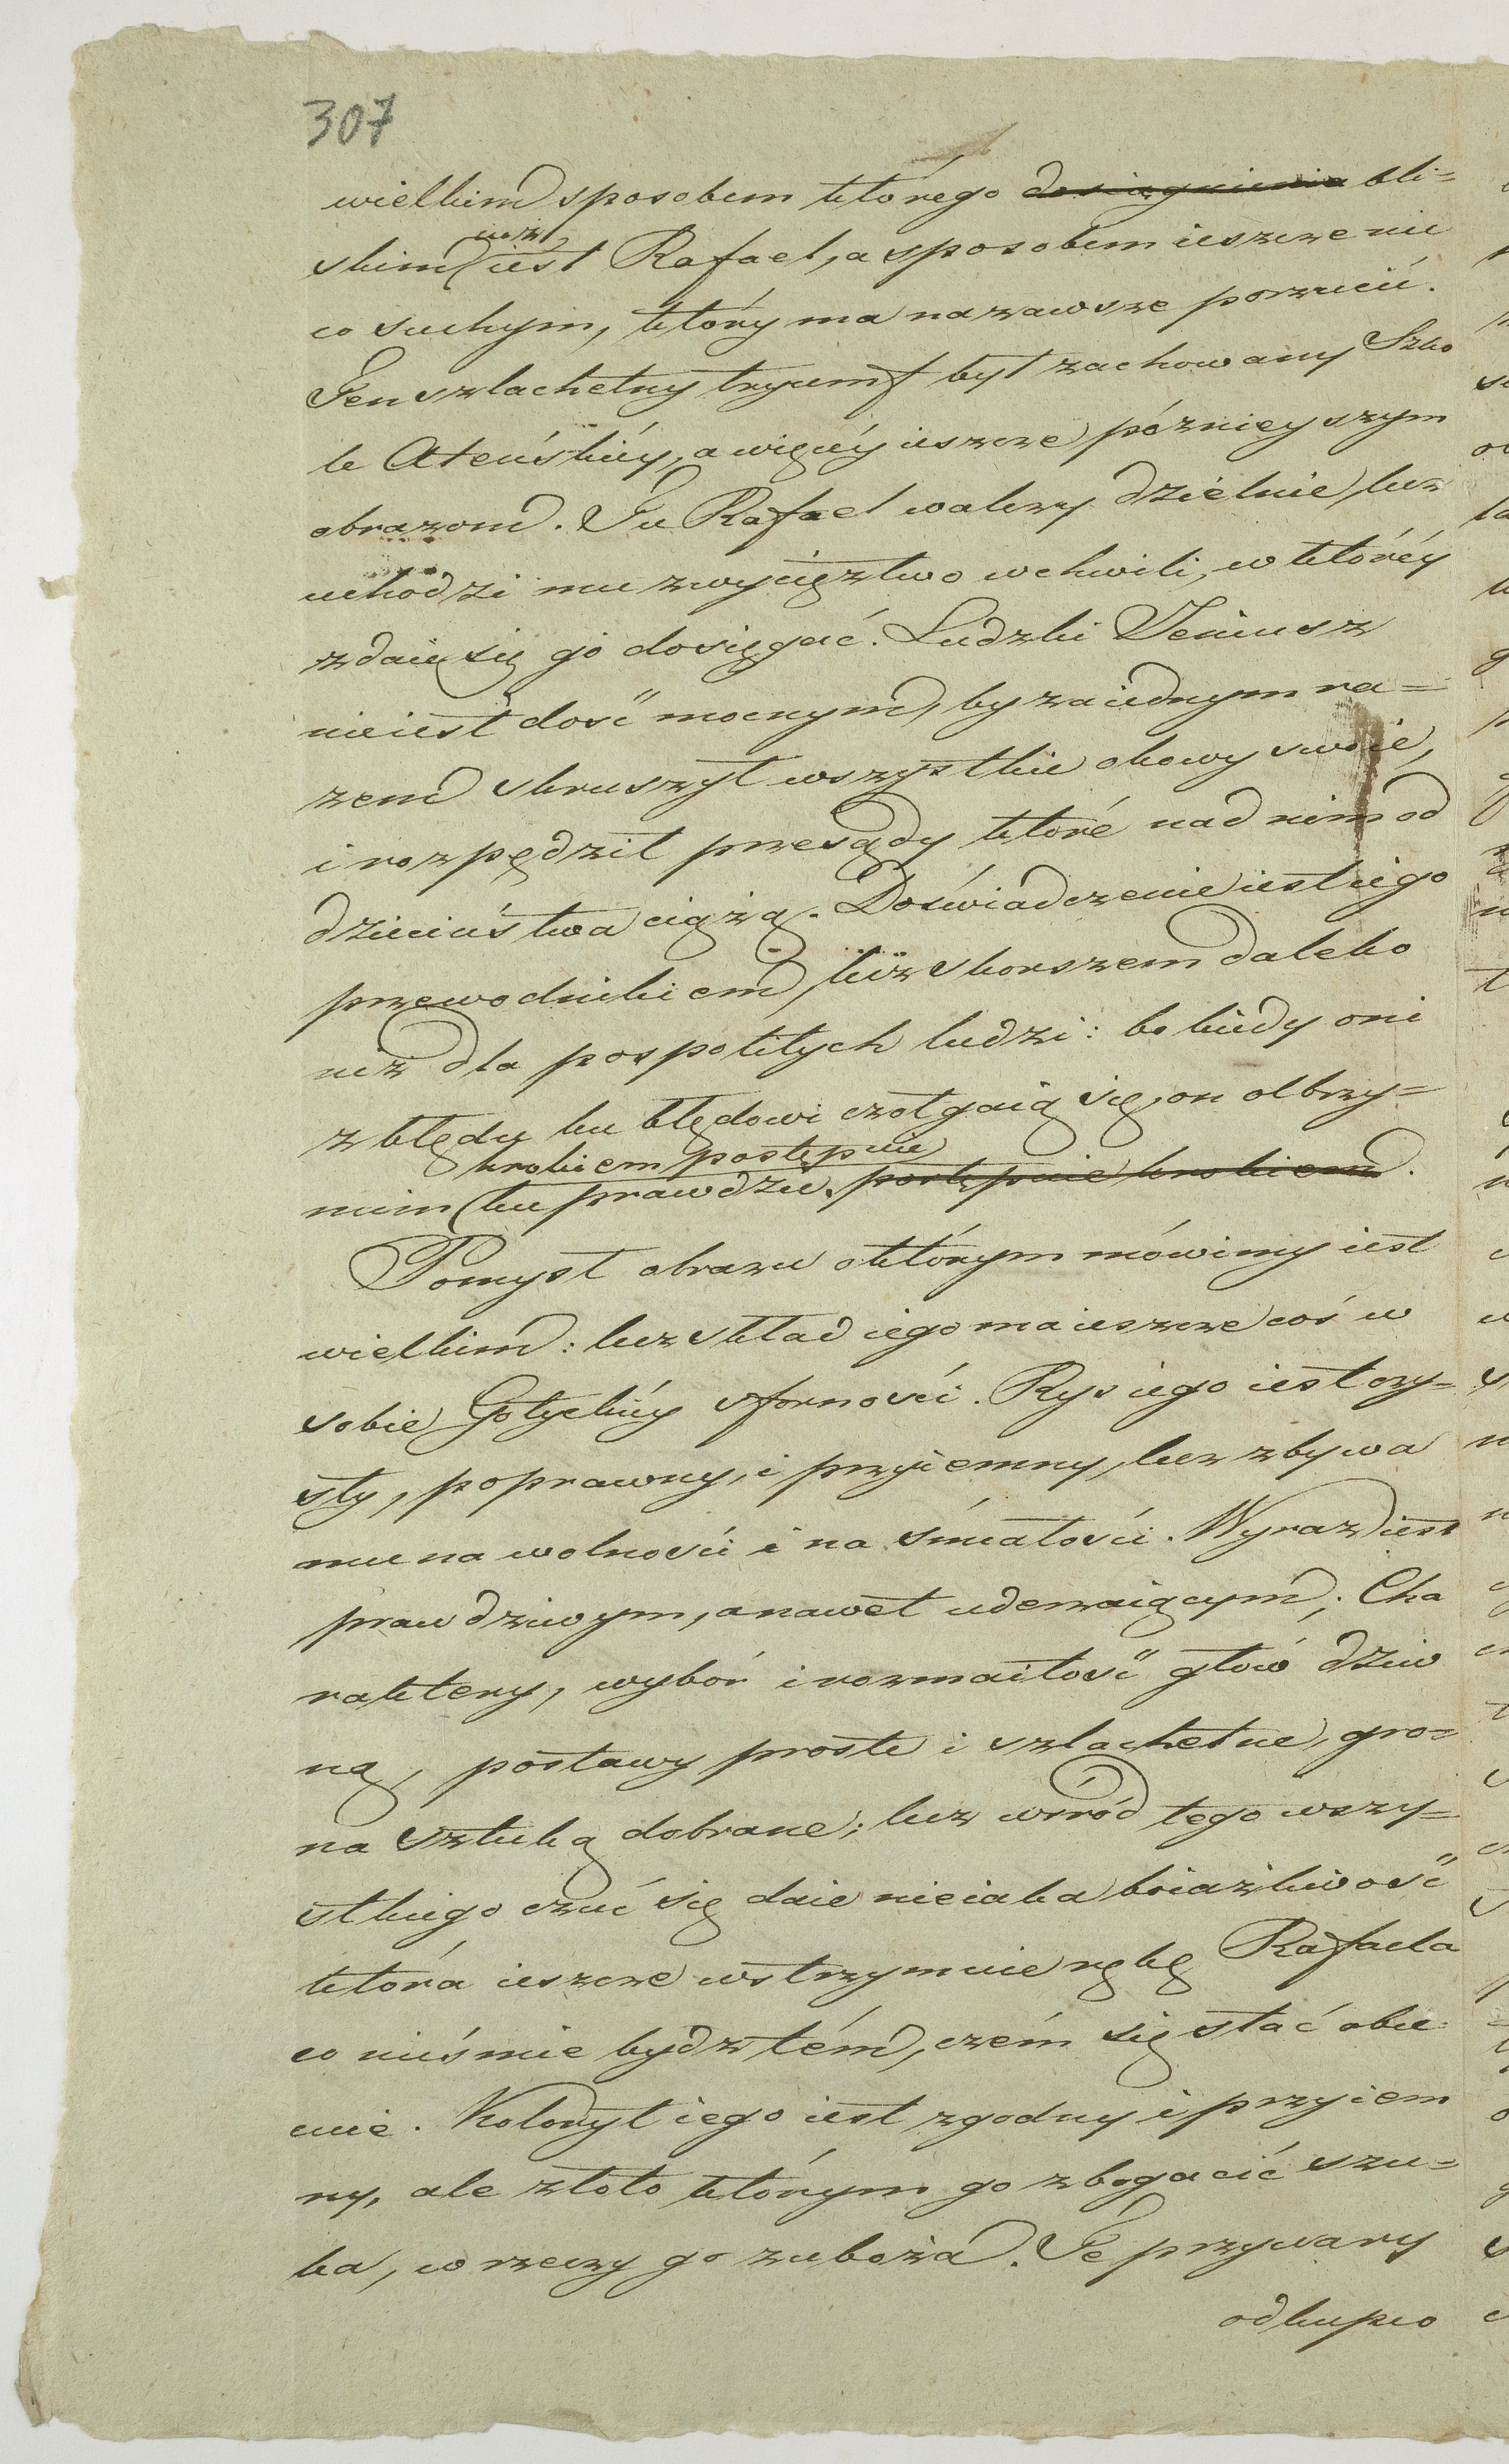 307
wielkim sposobem którego dosiągnienia bli=
skim iuż iest Rafael, a sposobem ieszcze nie
co suchym, który ma na zawsze porzucić.
Ten szlachetny tryumf był zachowany Szko
le Ateńskiéy, a więcéy ieszcze późnieyszym
obrazom. Tu Rafael walczy dzielnie, lecz
uchodzi mu zwycięztwo w chwili, w któréy
zdaie się go dosięgać. Ludzki Jeniusz
nie iest dość mocnym, by za iednym ra=
zem skruszył wszystkie okowy swoie,
i rozpędził przesądy które nad nim od
dzieciństwa ciążą. Doświadczenie iest iego
przewodnikiem, lecz skorszem daleko
niż dla pospolitych ludzi: bo kiedy oni
z błędu ku błędowi czołgaią się, on olbrzy=
krokiem postępuie
mim ku prawdzie. postępuie krokiem.
Pomysł obrazu o którym mówimy iest
wielkim: lecz skład iego ma ieszcze coś w
sobie Gotyckiéy sforności. Rys iego iest czy=
sty, poprawny, i przyiemny, lecz zbywa
mu na wolności i na śmiałości. Wyraz iest
prawdziwym, a nawet uderzaiącym; Cha
raktery, wybór i rozmaitość głów dziw
ną, postawy proste i szlachetne, gro=
na sztuką dobrane; lecz wśród tego wszy=
stkiego czuć się daie nieiaka boiaźliwość
która ieszcze wstrzymuie rękę Rafaela
co nieśmie bydź tém, czém się stać obie
cuie. Koloryt iego iest zgodny i przyiem
ny, ale złoto którym go zbogacić szu=
ka, w rzeczy go zuboża. Te przywary
odkupio